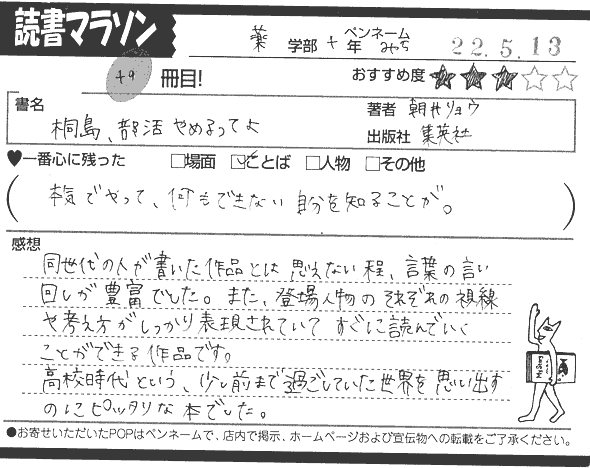 読書マラソン
薬 学部 十 年 ペンネーム みやち 22.5.13
+9 冊目!
おすすめ度 ★★★☆☆
書名 桐島、部活やめるってよ
著者 朝井リョウ
出版社 集英社
♥一番心に残った □場面 ☑ことば □人物 □その他
(本気でやって、何もできない自分を知ることが。)
感想
同世代の人が書いた作品とは思えない程、言葉の言い
回しが豊富でした。また、登場人物のそれぞれの視線
や考え方がしっかり表現されていてすぐに読んでいく
ことができる作品です。
高校時代という、少し前まで過ごしていた世界を思い出す
のにピッタリな本でした。
●お寄せいただいたPOPはペンネームで、店内で掲示、ホームページおよび宣伝物への転載をご了承ください。